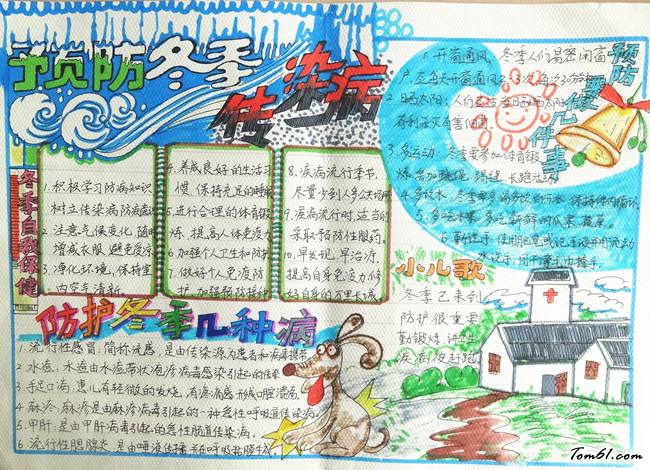 预防冬季
传染病
预防
要几件事
1.开窗通风:冬季人们易密闭窗
户,应每天开窗通风2~3次,每次30分钟
2.晒太阳:人们应适当日晒太阳
有利于杀灭有害细菌。
3.多运动:冬季要参加体育锻
炼,如跳绳、踢毽、长跑
4.多饮水:冬季
5.多吃水果:多吃新鲜的瓜果、蔬菜。
6.勤洗手:使用肥皂或洗手液并用流动
水洗手
冬季自我保健
1.积极学习防病知识
树立传染病防病意识
2.注意气候变化,随时
增减衣服,避免受凉
3.净化环境,保持室
内空气清新。
4.养成良好的生活习
惯,保持充足的睡眠
5.进行合理的体育锻
炼,提高人体免疫力
6.加强个人卫生和防护
7.做好个人免疫防
护,加强预防接种
8.疾病流行季节,
尽量少到人多公共场所
9.疾病流行时,适当的
采取预防性服药。
10.早发现,早治疗,
提高自身免疫力,修
好自身的万里长城
防护冬季几种病
1.流行性感冒:简称流感,是由传染源为患者和病毒携带
2.水痘:水痘由水痘带状疱疹病毒感染引起的传染
3.手足口病:患儿有轻微的发烧,有疼痛感,形成口腔溃疡。
4.麻疹:麻疹是由麻疹病毒引起的一种急性呼吸道传染病。
5.甲肝:是由甲肝病毒引起的急性肠道传染病。
6.流行性腮腺炎:是由唾液传播,在呼吸粘膜生成。
小儿歌
冬季已来到
防护很重要
勤锻炼 讲卫生
疾病被赶跑
Tom61.com